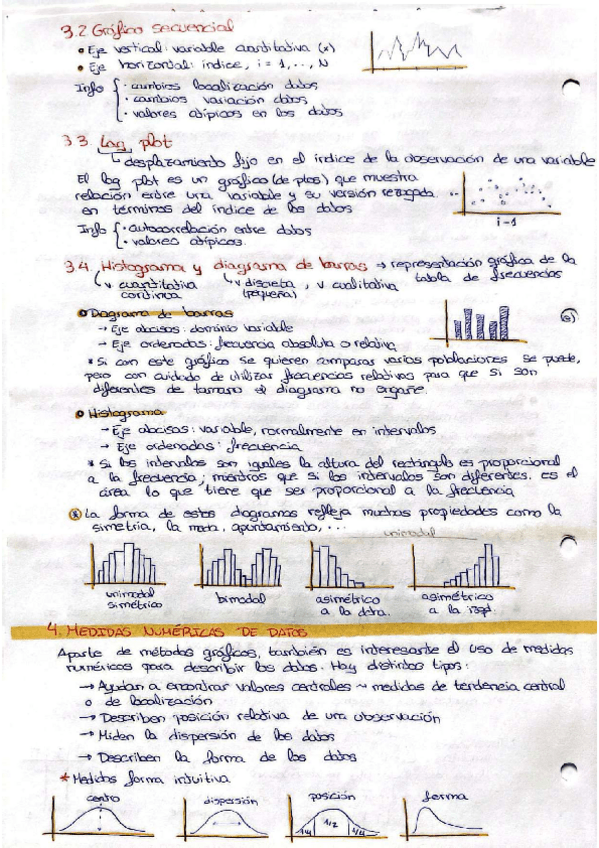 3.2 Gráfico secuencial
• Eje vertical: variable cuantitativa (x)
• Eje horizontal: índice, i = 1,..., N
Info { · cambios localización datos
· cambios variación datos
· valores atípicos en los datos
3.3. Lag plot
desplazamiento fijo en el índice de la observación de una variable
El lag plot es un gráfico (de ptos) que muestra
relación entre una variable y su versión retrasada
en términos del índice de los datos
i-1
Info { · autocorrelación entre datos
· valores atípicos.
3.4. Histograma y diagrama de barras → representación gráfica de la
tabla de frecuencias
v cuantitativa
continua
v discreta, v cualitativa
(pequeña)
• Diagrama de barras
→ Eje abcisas: dominio variable
→ Eje ordenadas: frecuencia absoluta o relativa
* Si con este gráfico se quieren comparar varias poblaciones se puede,
pero con cuidado de utilizar frecuencias relativas para que si son
diferentes de tamaño el diagrama no engañe.
• Histograma
→ Eje abcisas: variable, normalmente en intervalos
→ Eje ordenadas: frecuencia
* Si los intervalos son iguales la altura del rectángulo es proporcional
a la frecuencia; mientras que si los intervalos son diferentes, es el
área lo que tiene que ser proporcional a la frecuencia
* La forma de estos diagramas refleja muchas propiedades como la
simetría, la moda, apuntamiento, ...
unimodal
unimodal
simétrico
bimodal
asimétrico
a la dcha.
asimétrico
a la izqd.
4. MEDIDAS NUMÉRICAS DE DATOS
Aparte de métodos gráficos, también es interesante el uso de medidas
numéricas para describir los datos. Hay distintos tipos:
→ Ayudan a encontrar valores centrales ~ medidas de tendencia central
o de localización
→ Describen posición relativa de una observación
→ Miden la dispersión de los datos
→ Describen la forma de los datos
* Medidas forma intuitiva
centro
dispersión
posición
forma
1/4
1/2